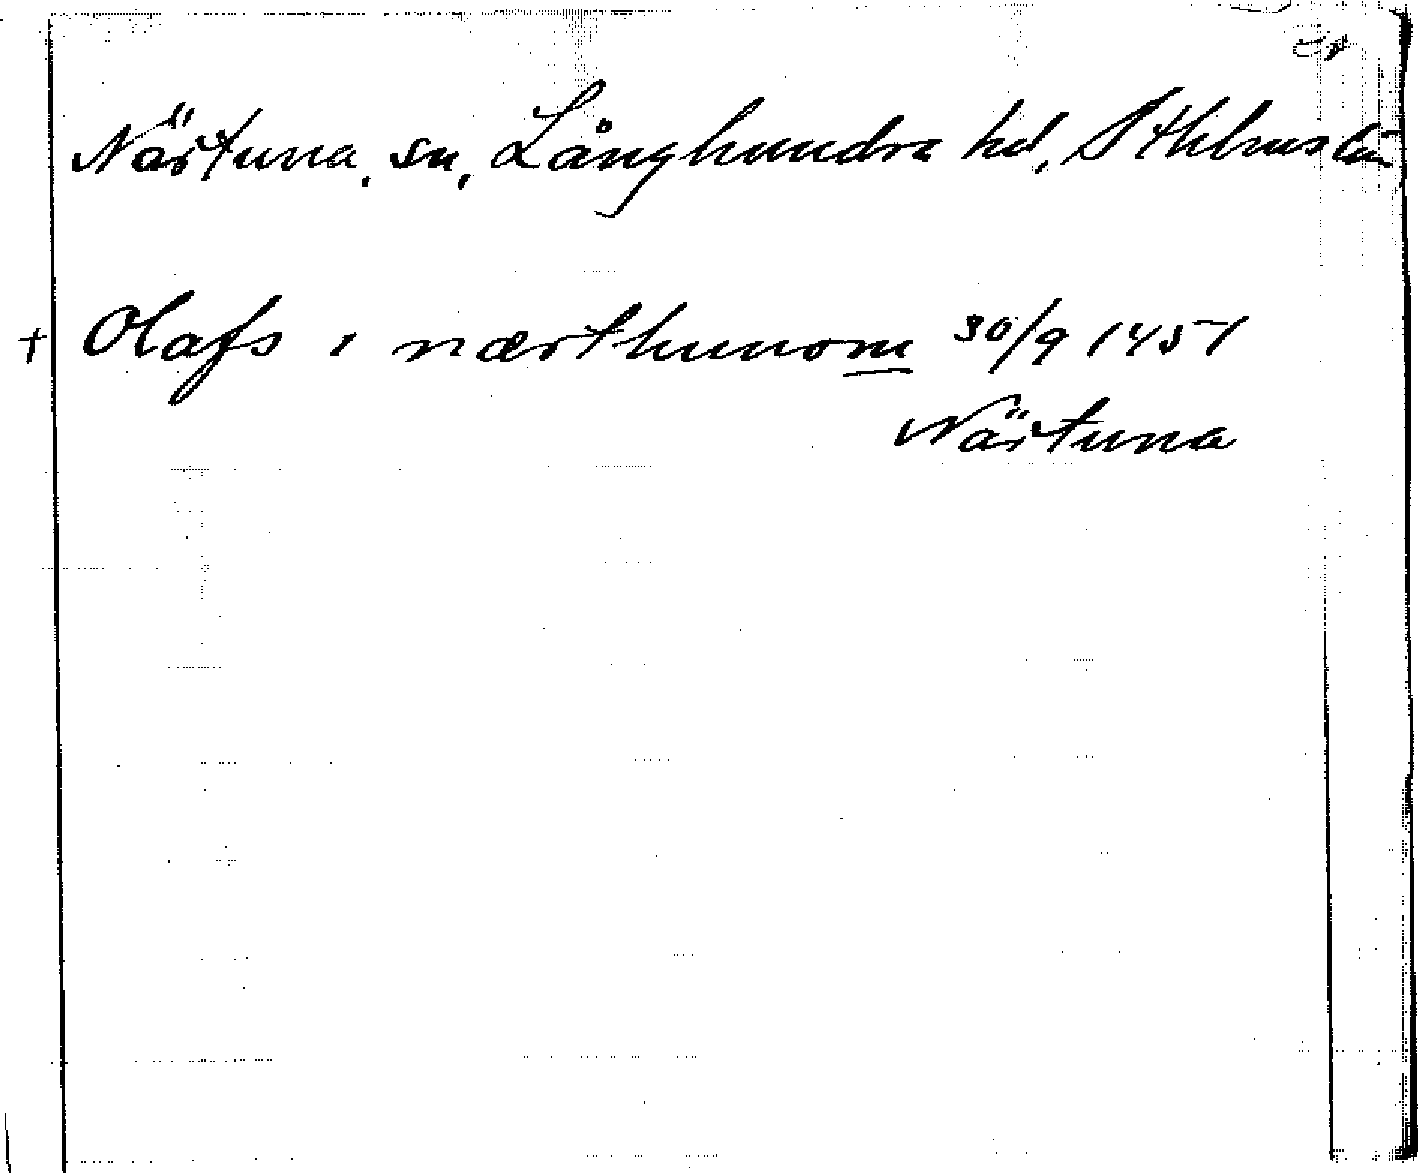 Närtuna, sn, Långhundra hd, Sthlms län
† Olafs i nærthunom 30/9 1451
Närtuna